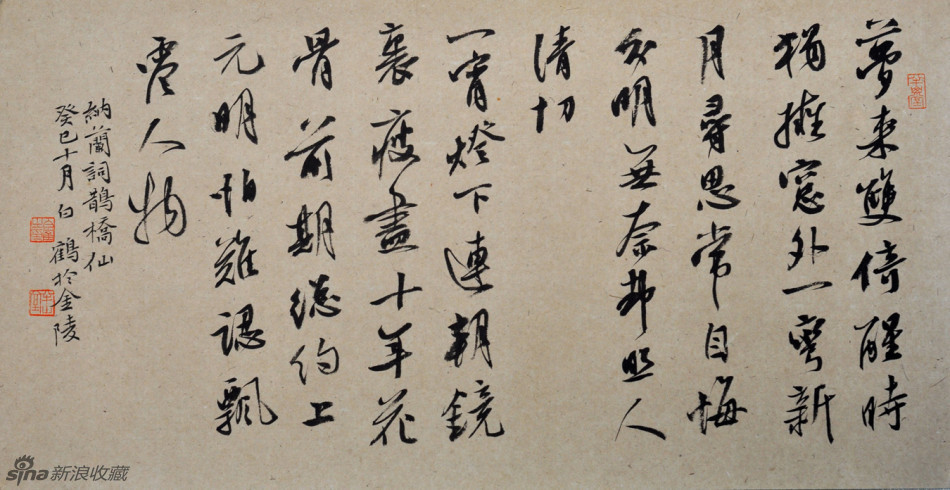 夢来雙倚醒時
猶擁窓外一彎新
月尋思常自悔
分明無奈却照人
清切
一宵燈下連朝鏡
裏瘦盡十年花
骨前期總約上
元明怕難認飄
零人物
納蘭詞鵲橋仙
癸巳十月白鶴於金陵
sina新浪收藏